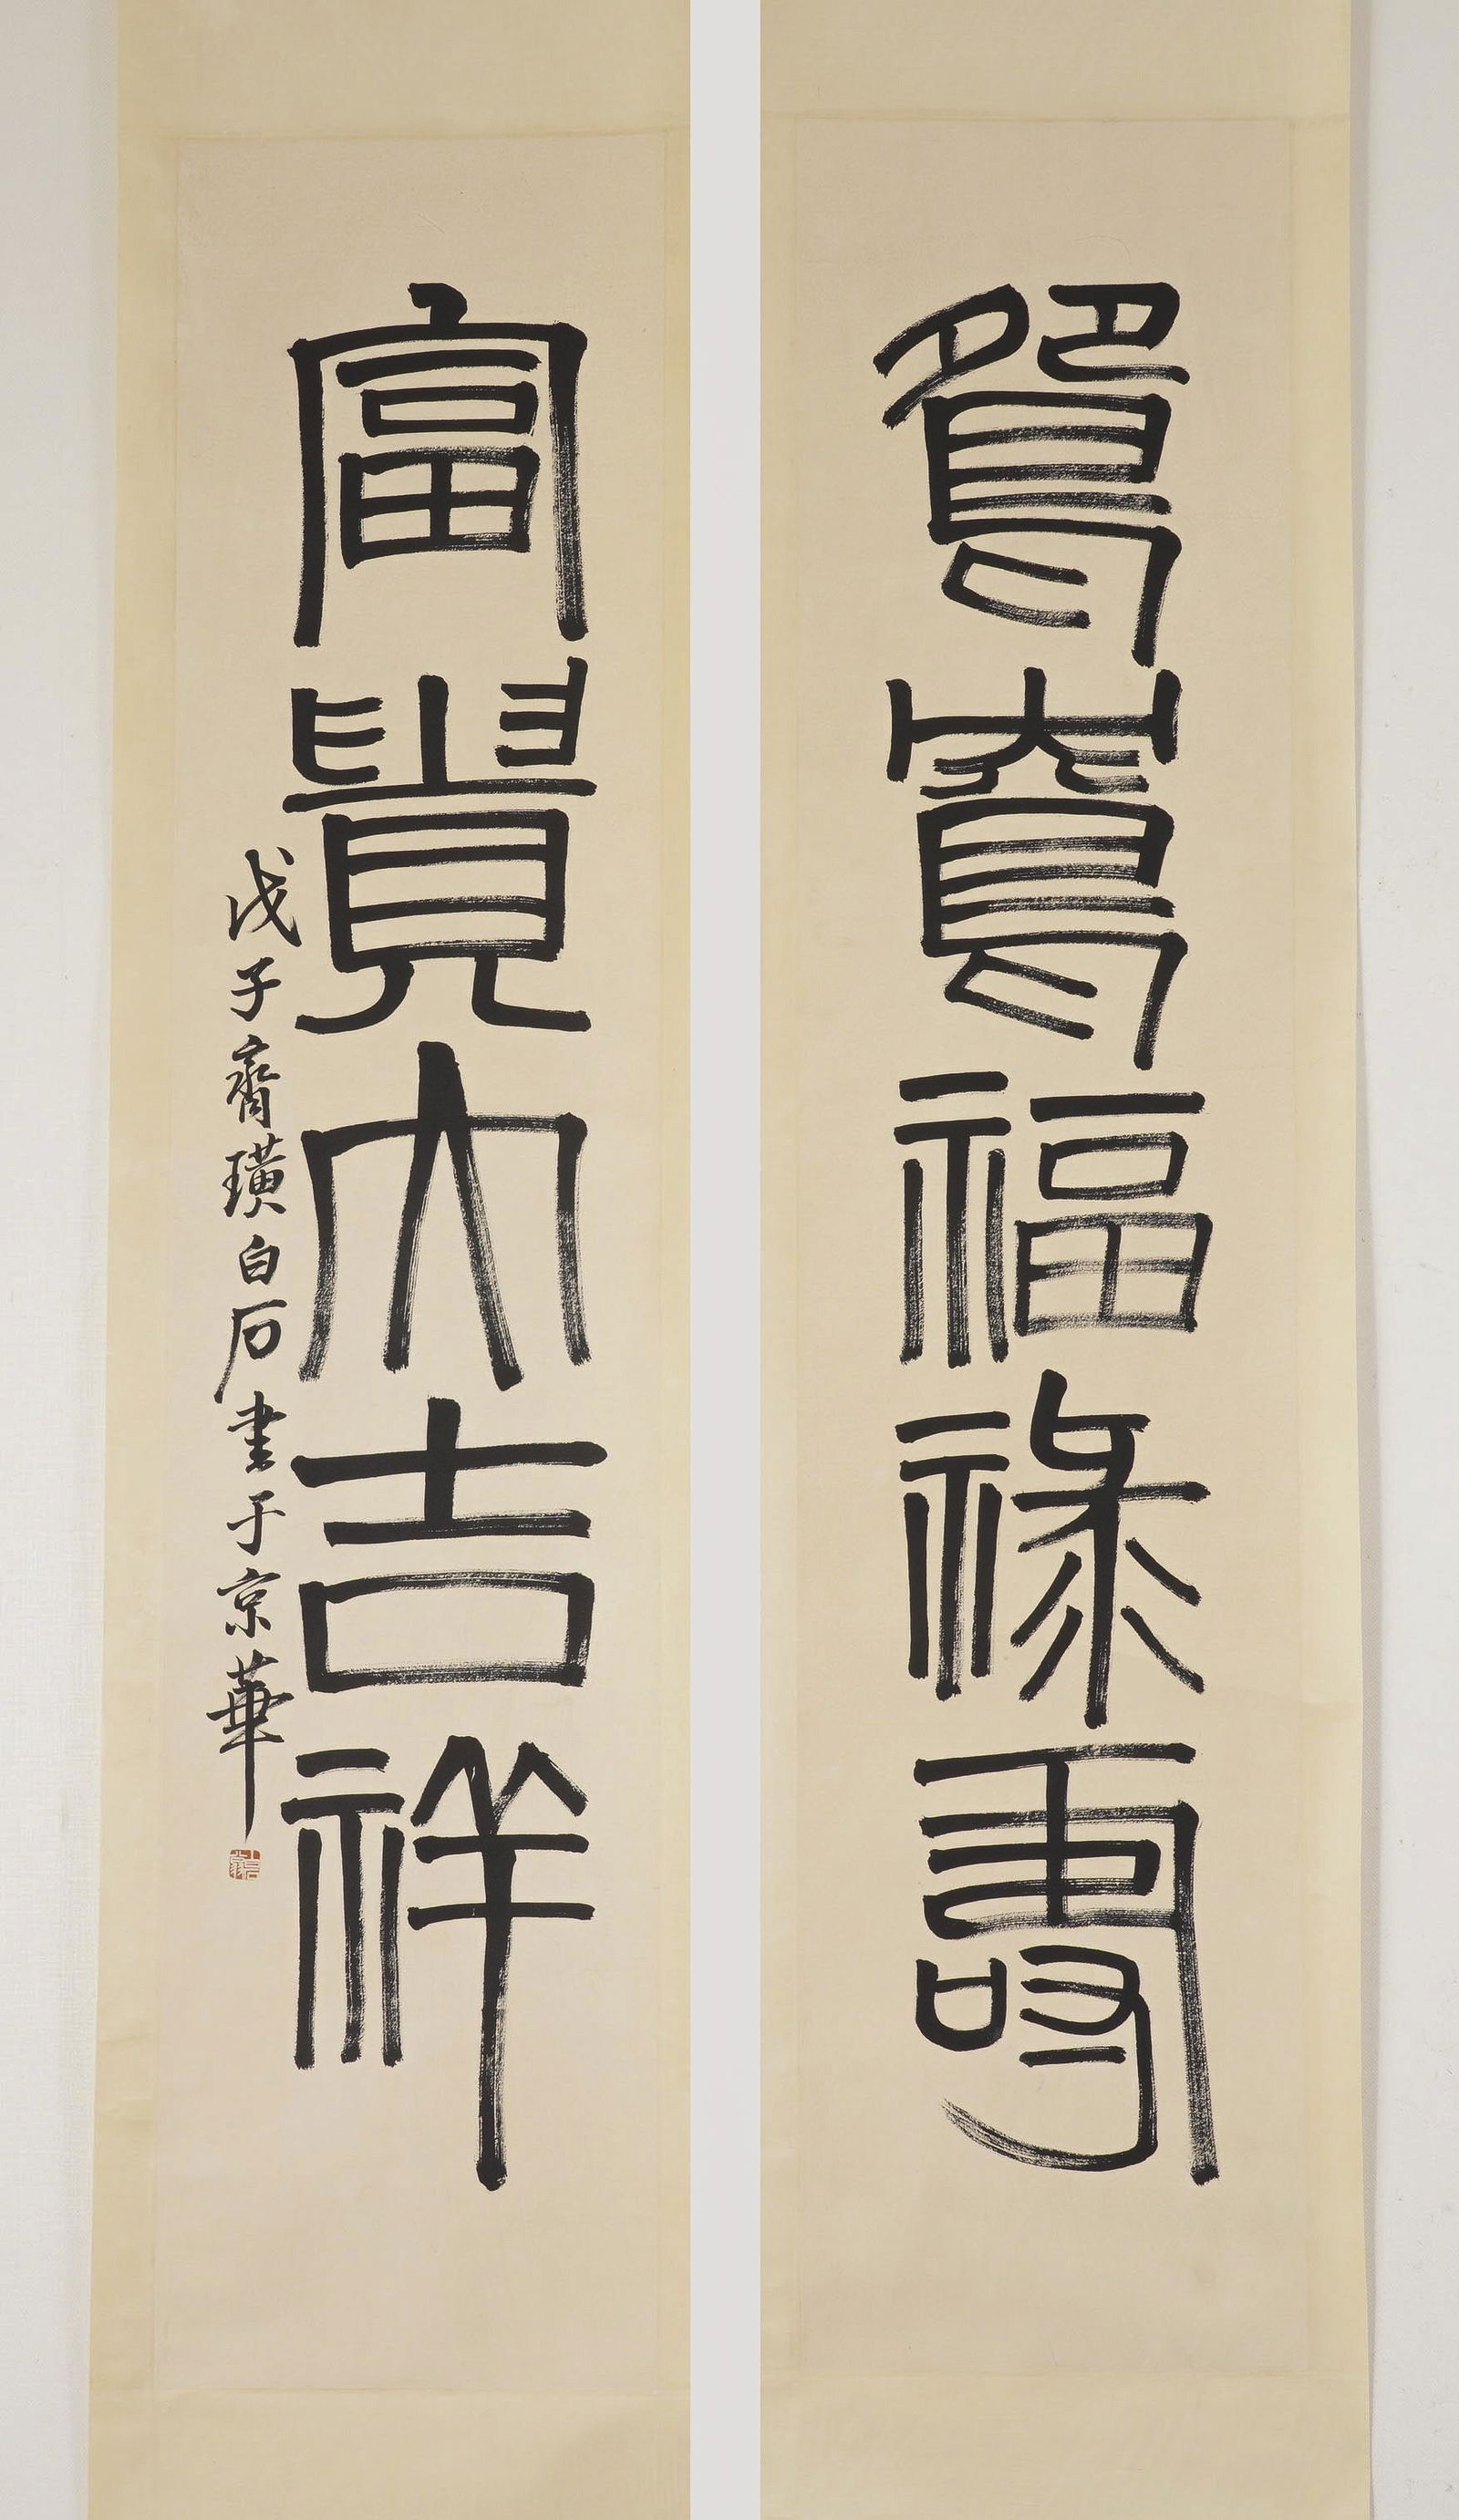 鴛鴦福祿壽
富貴大吉祥
戊子齊璜白石書于京華